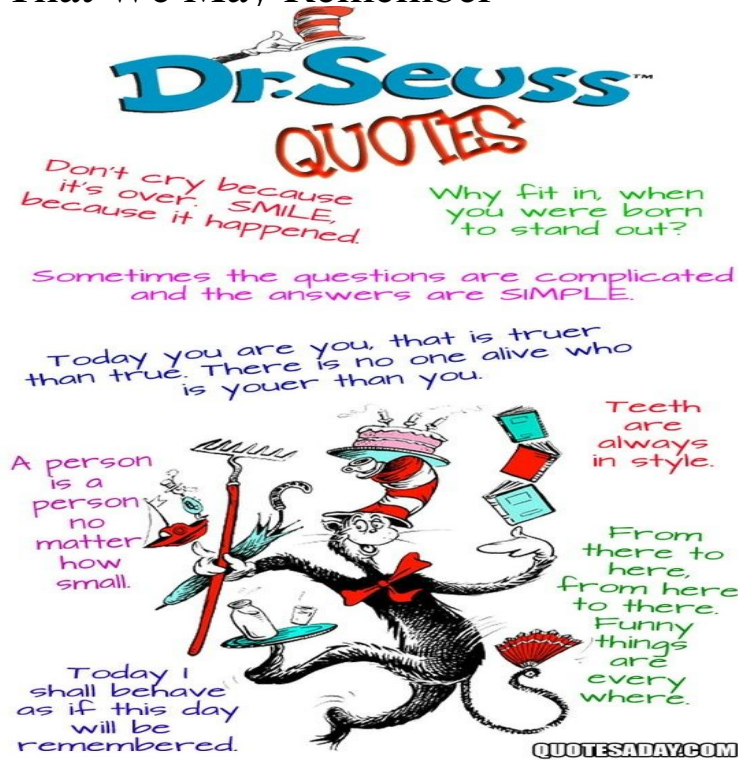 That We May Remember
Dr. Seuss™
QUOTES
Don't cry because
it's over. SMILE,
because it happened.
Why fit in, when
you were born
to stand out?
Sometimes the questions are complicated
and the answers are SIMPLE.
Today you are you, that is truer
than true. There is no one alive who
is youer than you.
Teeth
are
always
in style.
A person
is a
person
no
matter
how
small.
From
there to
here,
from here
to there.
Funny
things
are
every
where.
Today I
shall behave
as if this day
will be
remembered.
QUOTESADAY.COM